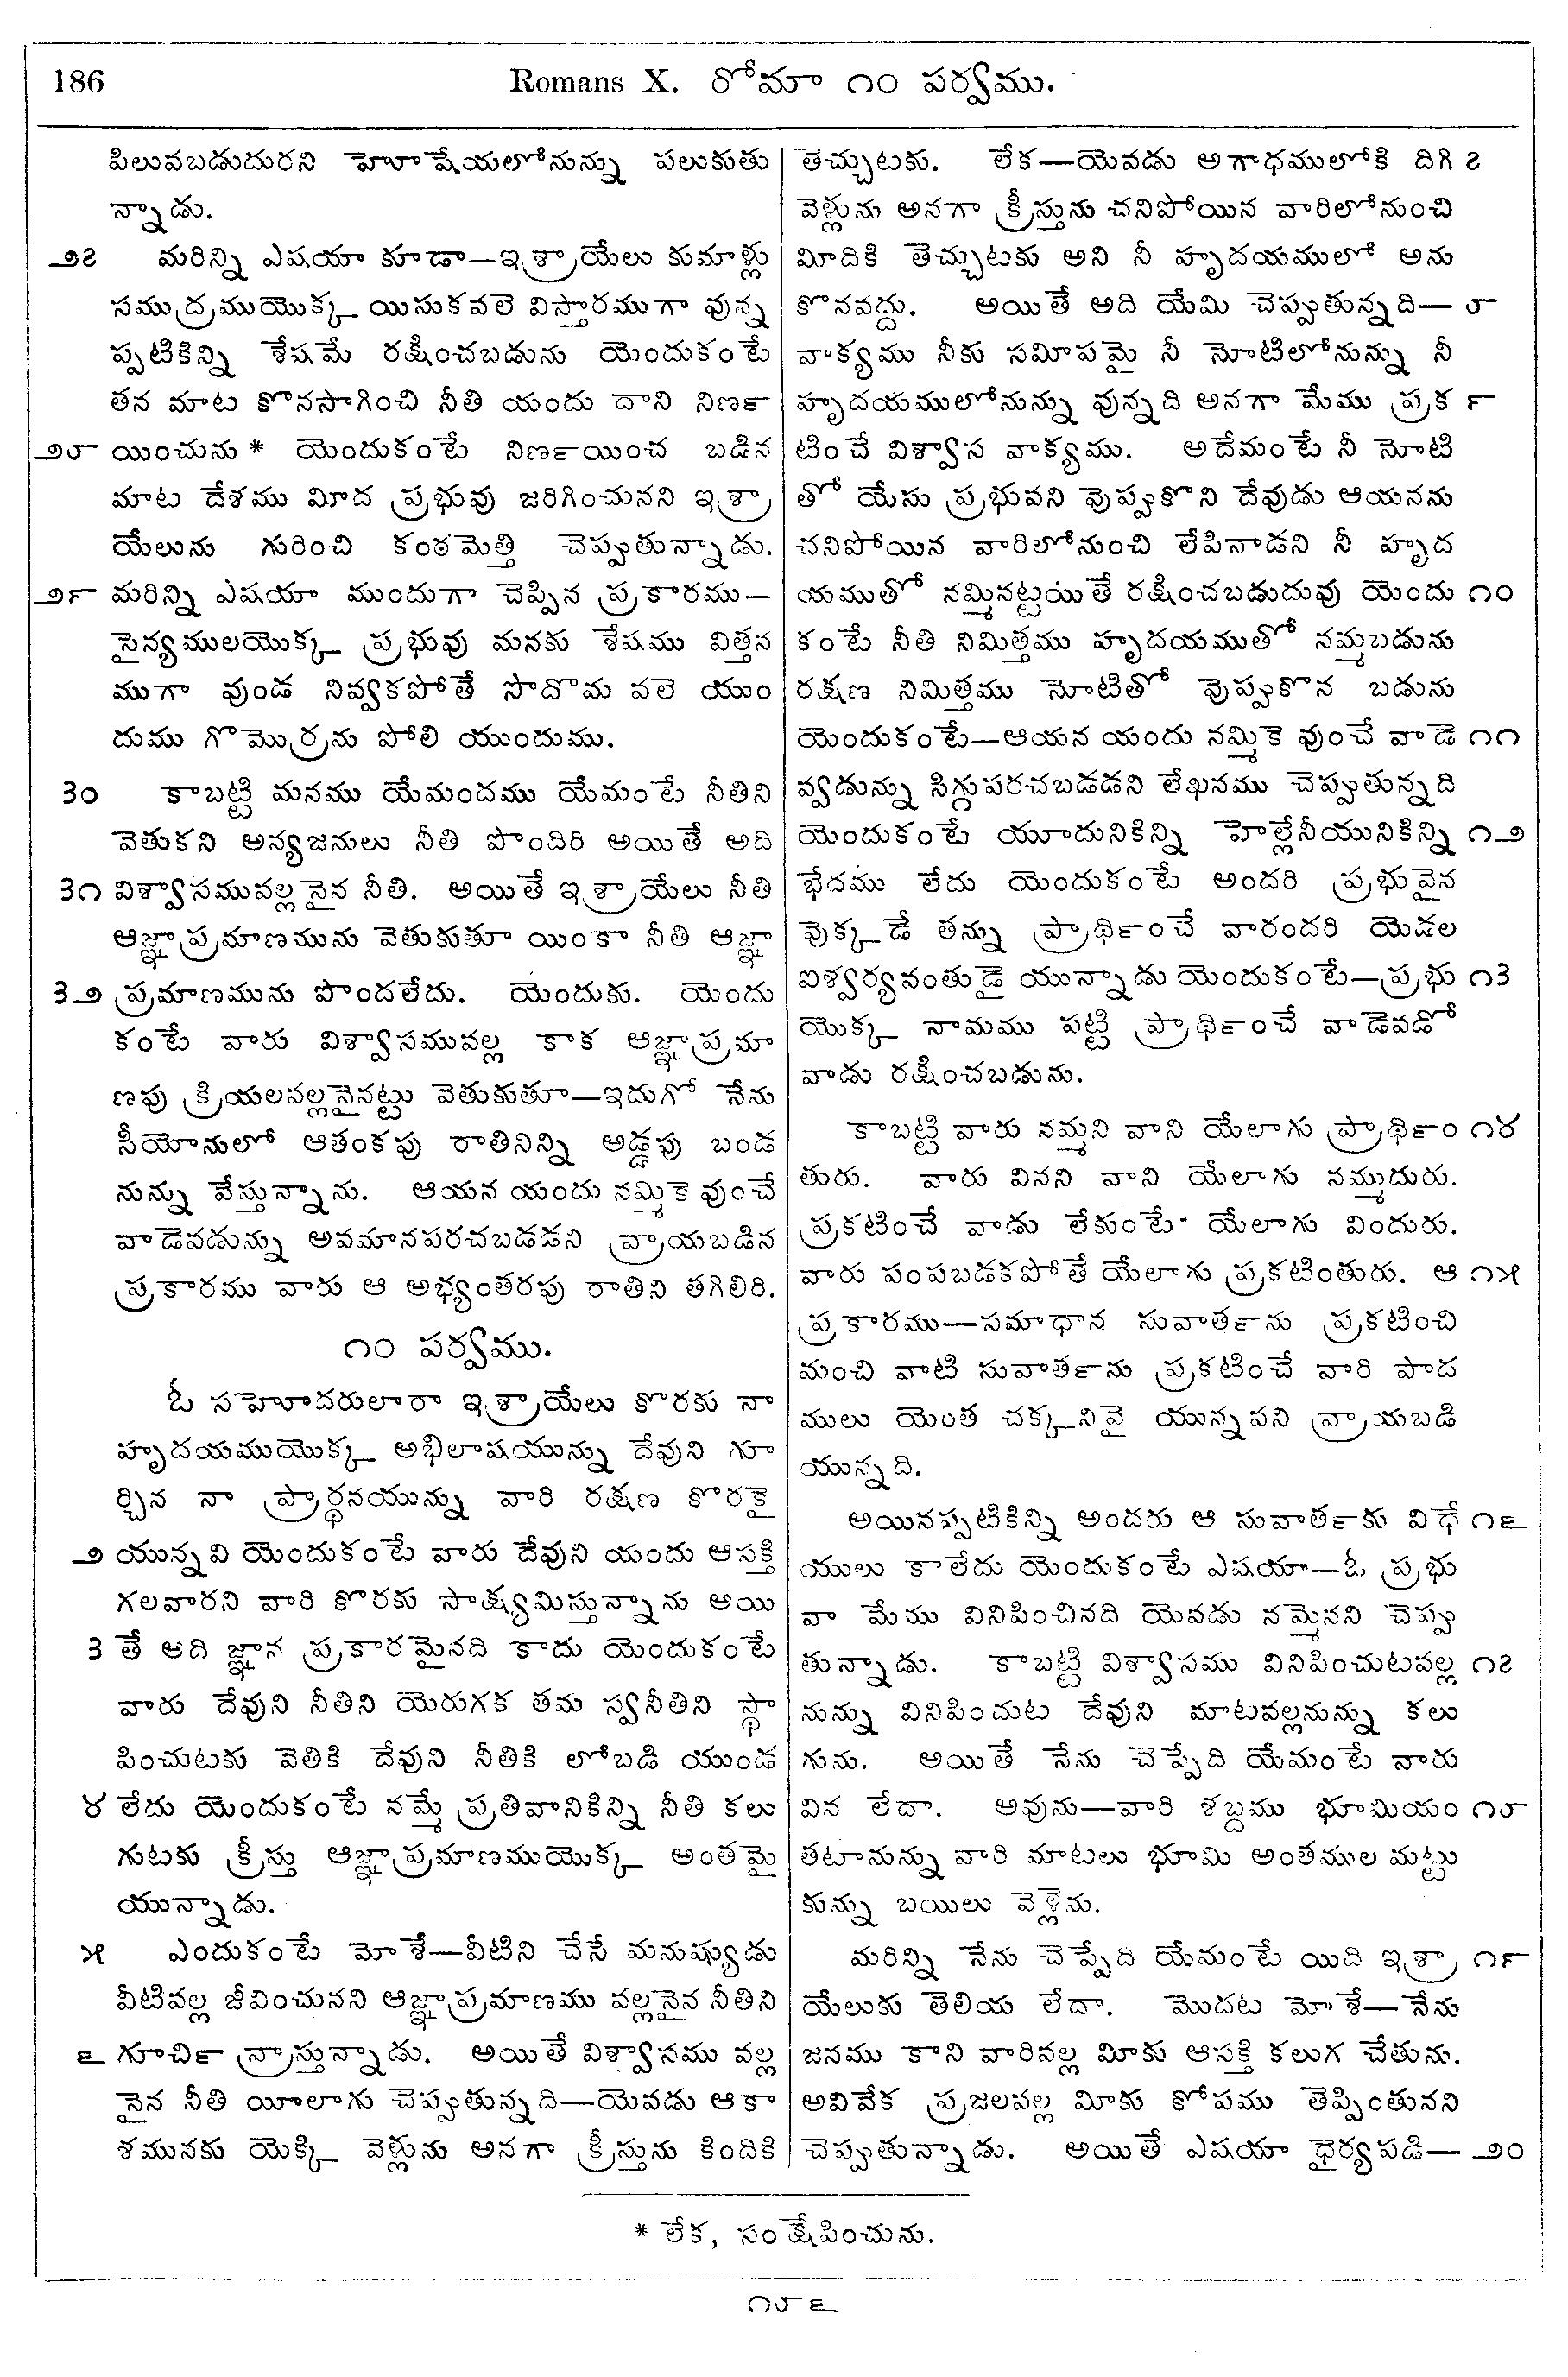 186
Romans X. రోమా ౧౦ పర్వము.
పిలువబడుదురని హెూషేయలోనున్ను పలుకుతు
న్నాడు.
౨౭ మరిన్ని ఎషయా కూడా—ఇశ్రాయేలు కుమాళ్లు
సముద్రముయొక్క యిసుకవలె విస్తారముగా వున్న
ప్పటికిన్ని శేషమే రక్షించబడును యెందుకంటే
తన మాట కొనసాగించి నీతి యందు దాని నిణ౯
౨౮ యించును * యెందుకంటే నిణ౯యించ బడిన
మాట దేశము మీద ప్రభువు జరిగించునని ఇశ్రా
యేలును గురించి కంఠమెత్తి చెప్పుతున్నాడు.
౨౯ మరిన్ని ఎషయా ముందుగా చెప్పిన ప్రకారము—
సైన్యములయొక్క ప్రభువు మనకు శేషము విత్తన
ముగా వుండ నివ్వకపోతే సొదొమ వలె యుం
దుము గొమొర్రను పోలి యుందుము.
౩౦ కాబట్టి మనము యేమందము యేమంటే నీతిని
వెతుకని అన్యజనులు నీతి పొందిరి అయితే అది
౩౧ విశ్వాసమువల్లనైన నీతి. అయితే ఇశ్రాయేలు నీతి
ఆజ్ఞాప్రమాణమును వెతుకుతూ యింకా నీతి ఆజ్ఞా
౩౨ ప్రమాణమును పొందలేదు. యెందుకు. యెందు
కంటే వారు విశ్వాసమువల్ల కాక ఆజ్ఞాప్రమా
ణపు క్రియలవల్లనైనట్టు వెతుకుతూ—ఇదుగో నేను
సీయోనులో ఆతంకపు రాతినిన్ని అడ్డపు బండ
నున్ను వేస్తున్నాను. ఆయన యందు నమ్మికె వుంచే
వాడెవడున్ను అవమానపరచబడడని వ్రాయబడిన
ప్రకారము వారు ఆ అభ్యంతరపు రాతిని తగిలిరి.
౧౦ పర్వము.
ఓ సహెూదరులారా ఇశ్రాయేలు కొరకు నా
హృదయముయొక్క అభిలాషయున్ను దేవుని గూ
ర్చిన నా ప్రార్థనయున్ను వారి రక్షణ కొరకై
౨ యున్నవి యెందుకంటే వారు దేవుని యందు ఆసక్తి
గలవారని వారి కొరకు సాక్ష్యమిస్తున్నాను అయి
౩ తే అది జ్ఞాన ప్రకారమైనది కాదు యెందుకంటే
వారు దేవుని నీతిని యెరుగక తమ స్వనీతిని స్థా
పించుటకు వెతికి దేవుని నీతికి లోబడి యుండ
౪ లేదు యెందుకంటే నమ్మే ప్రతివానికిన్ని నీతి కలు
గుటకు క్రీస్తు ఆజ్ఞాప్రమాణముయొక్క అంతమై
యున్నాడు.
౫ ఎందుకంటే మోశే—వీటిని చేసే మనుష్యుడు
వీటివల్ల జీవించునని ఆజ్ఞాప్రమాణము వల్లనైన నీతిని
౬ గూచి౯ వ్రాస్తున్నాడు. అయితే విశ్వాసము వల్ల
నైన నీతి యీలాగు చెప్పుతున్నది—యెవడు ఆకా
శమునకు యెక్కి వెళ్లును అనగా క్రీస్తును కిందికి
తెచ్చుటకు. లేక—యెవడు అగాధములోకి దిగి ౭
వెళ్లును అనగా క్రీస్తును చనిపోయిన వారిలోనుంచి
మీదికి తెచ్చుటకు అని నీ హృదయములో అను
కొనవద్దు. అయితే అది యేమి చెప్పుతున్నది— ౮
వాక్యము నీకు సమీపమై నీ నోటిలోనున్ను నీ
హృదయములోనున్ను వున్నది అనగా మేము ప్రక ౯
టించే విశ్వాస వాక్యము. అదేమంటే నీ నోటి
తో యేసు ప్రభువని వొప్పుకొని దేవుడు ఆయనను
చనిపోయిన వారిలోనుంచి లేపినాడని నీ హృద
యముతో నమ్మినట్టయితే రక్షించబడుదువు యెందు ౧౦
కంటే నీతి నిమిత్తము హృదయముతో నమ్మబడును
రక్షణ నిమిత్తము నోటితో వొప్పుకొన బడును
యెందుకంటే—ఆయన యందు నమ్మికె వుంచే వాడె ౧౧
వ్వడున్ను సిగ్గుపరచబడడని లేఖనము చెప్పుతున్నది
యెందుకంటే యూదునికిన్ని హెల్లేనీయునికిన్ని ౧౨
భేదము లేదు యెందుకంటే అందరి ప్రభువైన
వొక్కడే తన్ను ప్రాథి౯ంచే వారందరి యెడల
ఐశ్వర్యవంతుడై యున్నాడు యెందుకంటే—ప్రభు ౧౩
యొక్క నామము పట్టి ప్రాథి౯ంచే వాడెవడో
వాడు రక్షించబడును.
కాబట్టి వారు నమ్మని వాని యేలాగు ప్రాథి౯ం ౧౪
తురు. వారు వినని వాని యేలాగు నమ్ముదురు.
ప్రకటించే వాడు లేకుంటే యేలాగు విందురు.
వారు పంపబడకపోతే యేలాగు ప్రకటింతురు. ఆ ౧౫
ప్రకారము—సమాధాన సువాత౯ను ప్రకటించి
మంచి వాటి సువాత౯ను ప్రకటించే వారి పాద
ములు యెంత చక్కనివై యున్నవని వ్రాయబడి
యున్నది.
అయినప్పటికిన్ని అందరు ఆ సువాత౯కు విధే ౧౬
యులు కాలేదు యెందుకంటే ఎషయా—ఓ ప్రభు
వా మేము వినిపించినది యెవడు నమ్మెనని చెప్పు
తున్నాడు. కాబట్టి విశ్వాసము వినిపించుటవల్ల ౧౭
నున్ను వినిపించుట దేవుని మాటవల్లనున్ను కలు
గును. అయితే నేను చెప్పేది యేమంటే వారు
విన లేదా. అవును—వారి శబ్దము భూమియం ౧౮
తటానున్ను వారి మాటలు భూమి అంతముల మట్టు
కున్ను బయిలు వెళ్లెను.
మరిన్ని నేను చెప్పేది యేమంటే యిది ఇశ్రా ౧౯
యేలుకు తెలియ లేదా. మొదట మోశే—నేను
జనము కాని వారివల్ల మీకు ఆసక్తి కలుగ చేతును.
అవివేక ప్రజలవల్ల మీకు కోపము తెప్పింతునని
చెప్పుతున్నాడు. అయితే ఎషయా ధైర్యపడి— ౨౦
* లేక, సంక్షేపించును.
౧౮౬